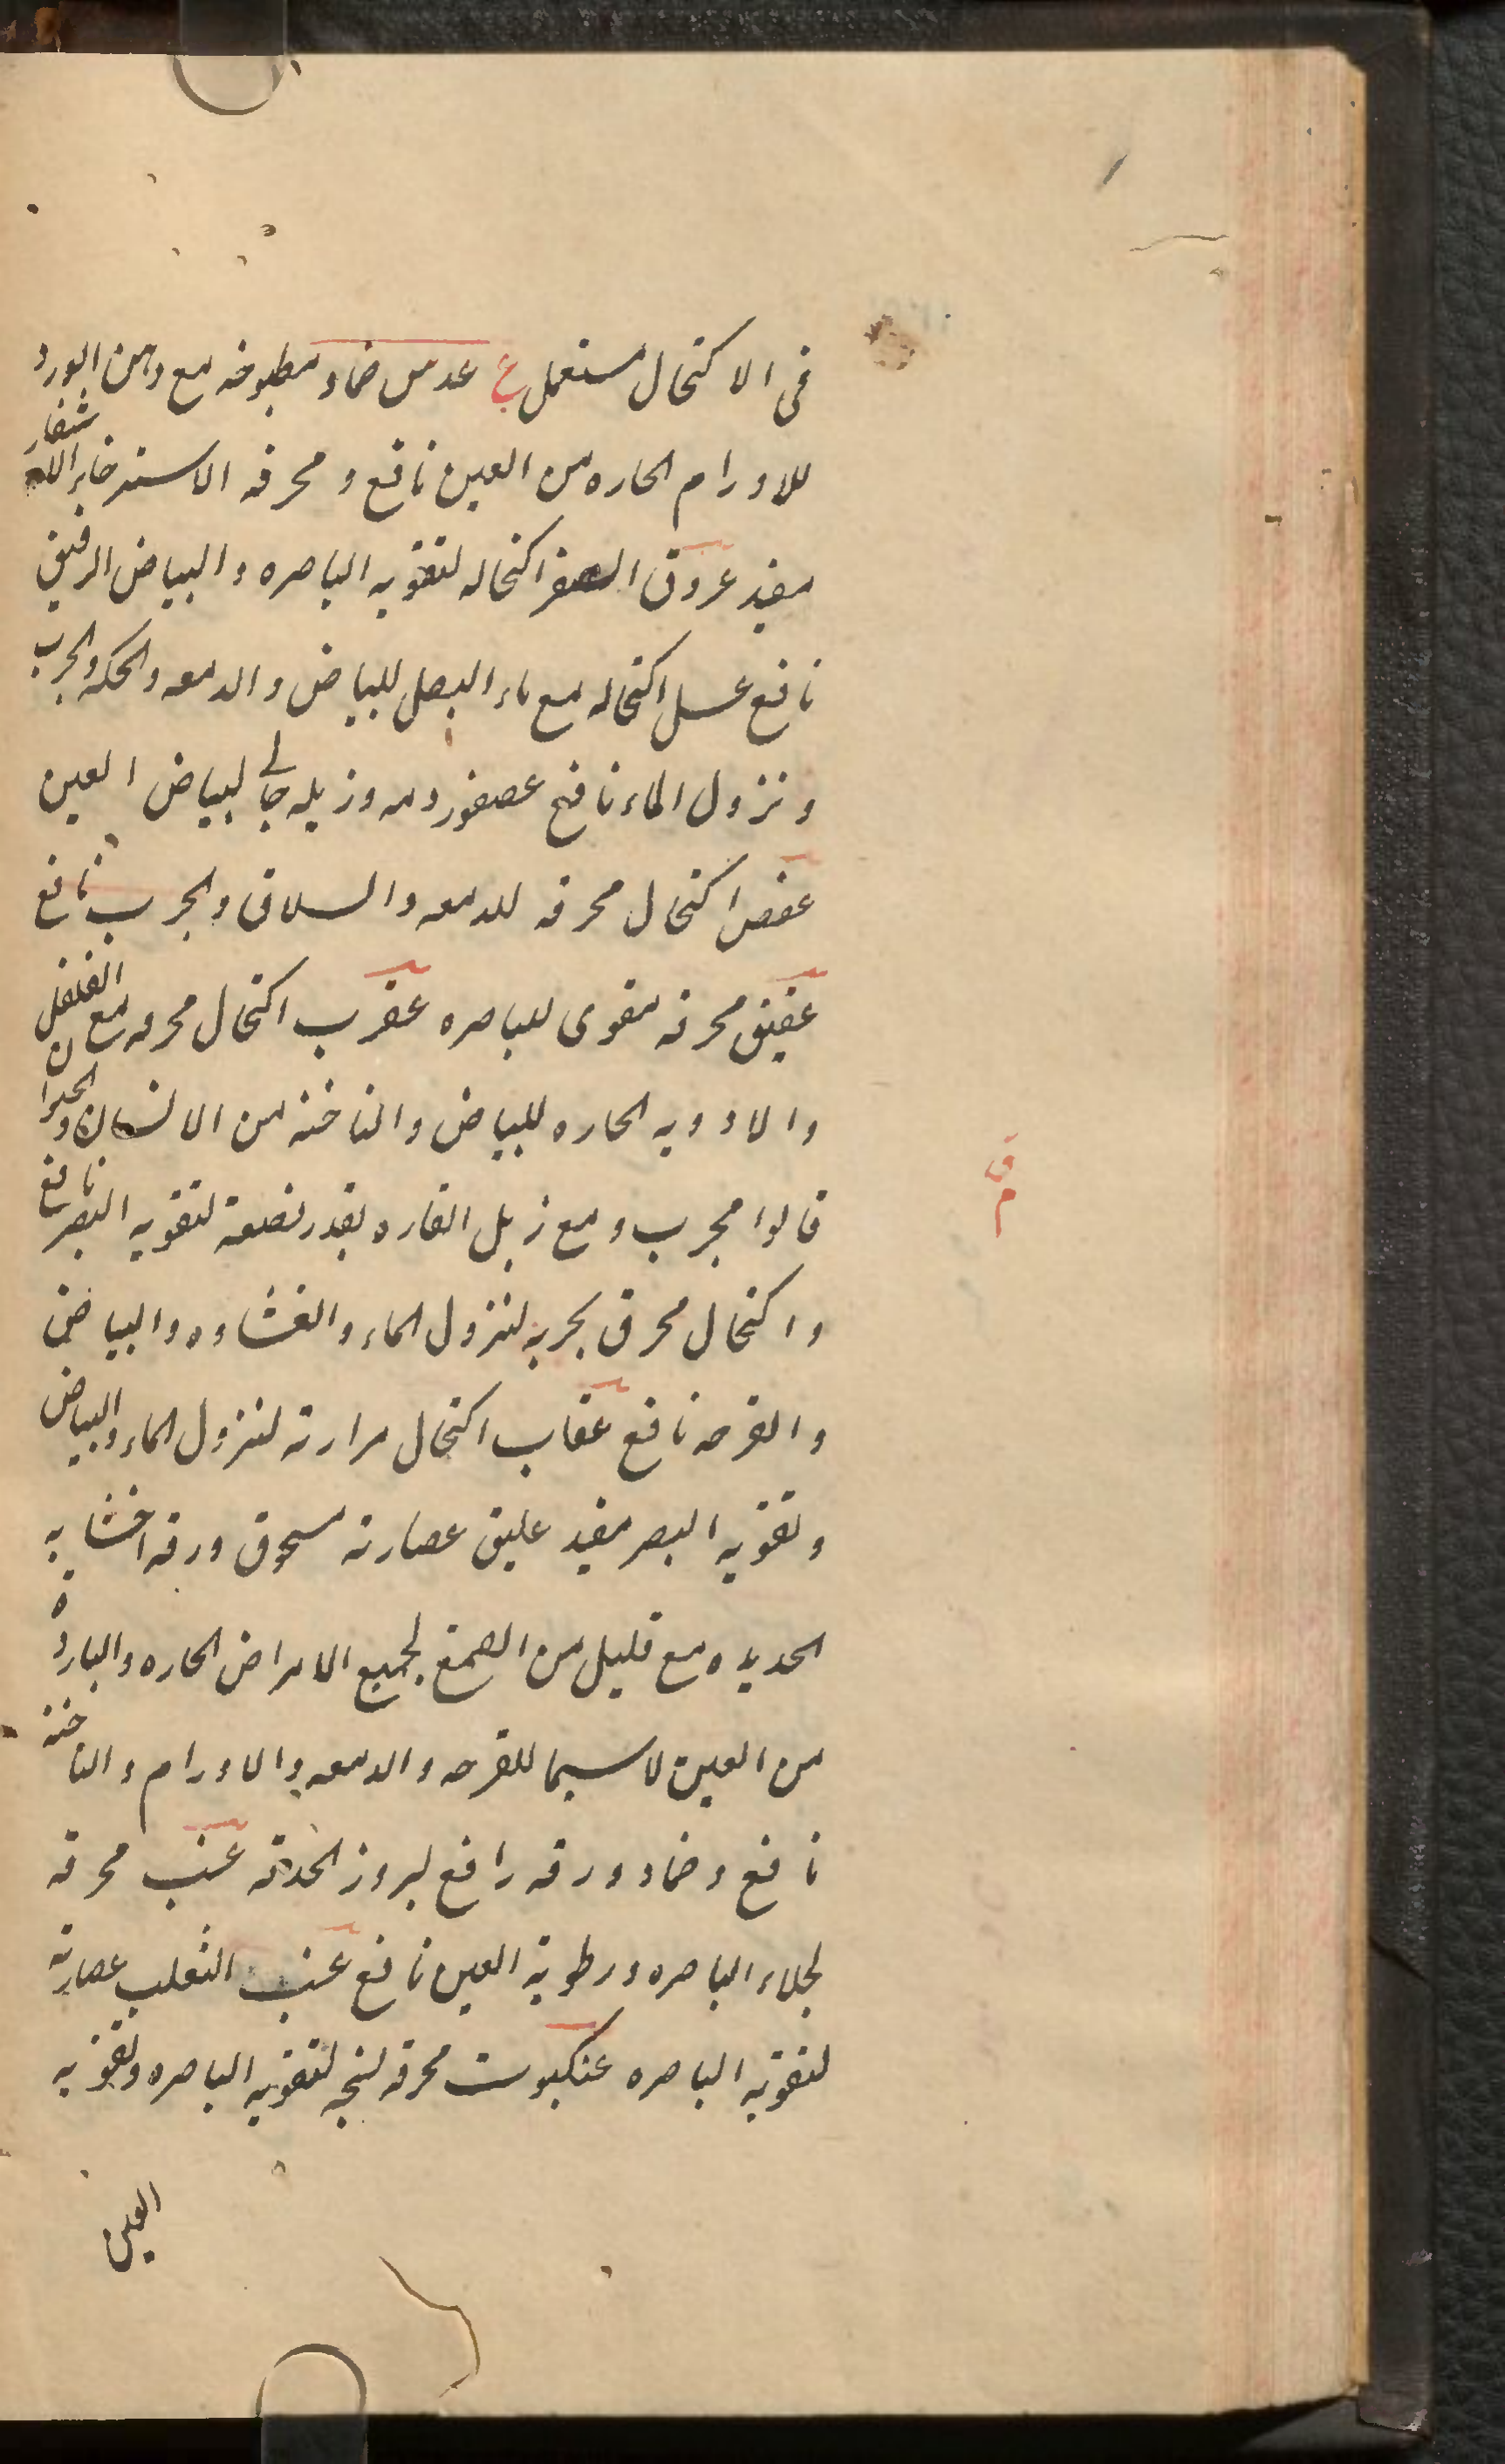 فى الاكتحال مستعمل ع عدس ضماد مطبوخه مع دهن الورد
للاورام الحاره من العين نافع و محرقه الاسترخاء الاشفار
مفيد عروق الصفر اكتحاله لتقويه الباصره والبياض الرقيق
نافع عسل اكتحاله مع ماء البصل للبياض والدمعه والحكه والجرب
ونزول الماء نافع عصفور دمه وزبله جالى لبياض العين
عفص اكتحال محرقه للدمعه والسلاق والجرب نافع
عقيق محرقه مقوى للباصره عقرب اكتحال محرقه مع الفلفل
والادويه الحاره للبياض والناخنه من الانسان والحيوان
قالوا مجرب ومع زبل الفاره بقدر نصفه لتقويه البصر نافع
واكتحال محرق بحريه لنزول الماء والغشاوه والبياض
والقرحه نافع عقاب اكتحال مرارته لنزول الماء والبياض
وتقويه البصر مفيد عليق عصارته مسحوق ورقه اخشابه
الحديده مع قليل من الصمغ لجميع الامراض الحاره والبارده
من العين لاسيما للقرحه والدمعه والاورام والناخنه
نافع وضماد ورقه رافع لبروز الحدقه عنب محرقه
لجلاء الباصره ورطوبة العين نافع عنب الثعلب عصارته
لتقويه الباصره عنكبوت محرقه نسجه لتقويه الباصره وتقويه
العين